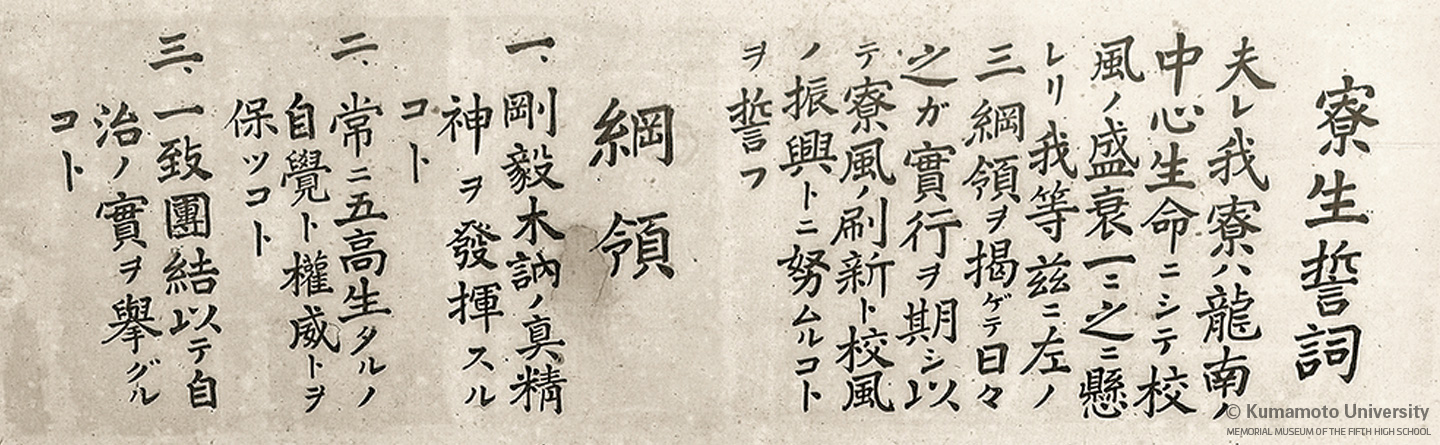 寮生誓詞
夫レ我寮ハ龍南ノ
中心生命ニシテ校
風ノ盛衰一ニ之ニ懸
レリ我等茲ニ左ノ
三綱領ヲ掲ゲテ日々
之ガ實行ヲ期シ以
テ寮風ノ刷新ト校風
ノ振興トニ努ムルコト
ヲ誓フ
綱領
一、剛毅木訥ノ真精
神ヲ發揮スル
コト
二、常ニ五高生タルノ
自覺ト權威トヲ
保ツコト
三、一致團結以テ自
治ノ實ヲ擧グル
コト
© Kumamoto University
MEMORIAL MUSEUM OF THE FIFTH HIGH SCHOOL